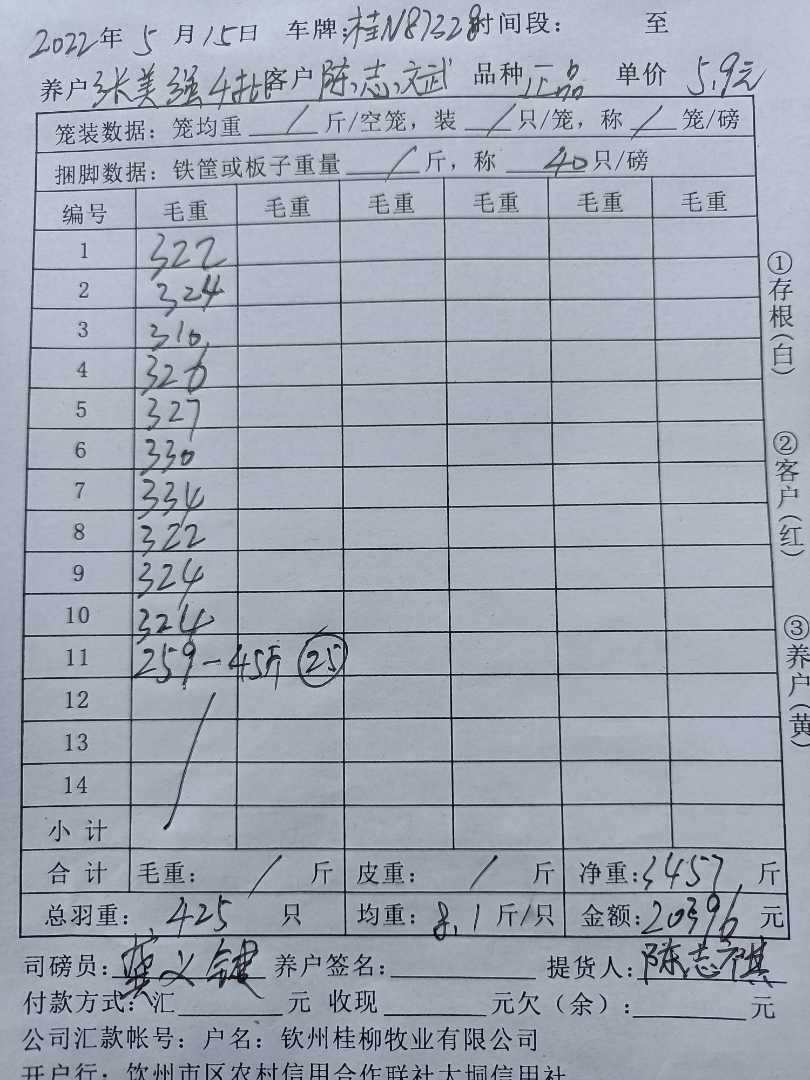 2022年 5 月 15日 车牌:桂N87328时间段: 至
养户 张美强4批 客户 陈志文武 品种 正品 单价 5.9元
笼装数据: 笼均重 / 斤/空笼, 装 / 只/笼, 称 / 笼/磅
捆脚数据: 铁筐或板子重量 / 斤, 称 40 只/磅
编号 毛重 毛重 毛重 毛重 毛重 毛重
1 322
2 324
3 310
4 326
5 327
6 330
7 334
8 322
9 324
10 324
11 259-45斤 25
12
13
14
小计
合计 毛重: / 斤 皮重: / 斤 净重:3457 斤
总羽重: 425 只 均重: 8.1 斤/只 金额:20396 元
司磅员: 龚义键 养户签名: 提货人: 陈志祺
付款方式: 汇 元 收现 元欠(余): 元
公司汇款帐号: 户名: 钦州桂柳牧业有限公司
开户行: 钦州市区农村信用合作联社大垌信用社
①存根(白)
②客户(红)
③养户(黄)